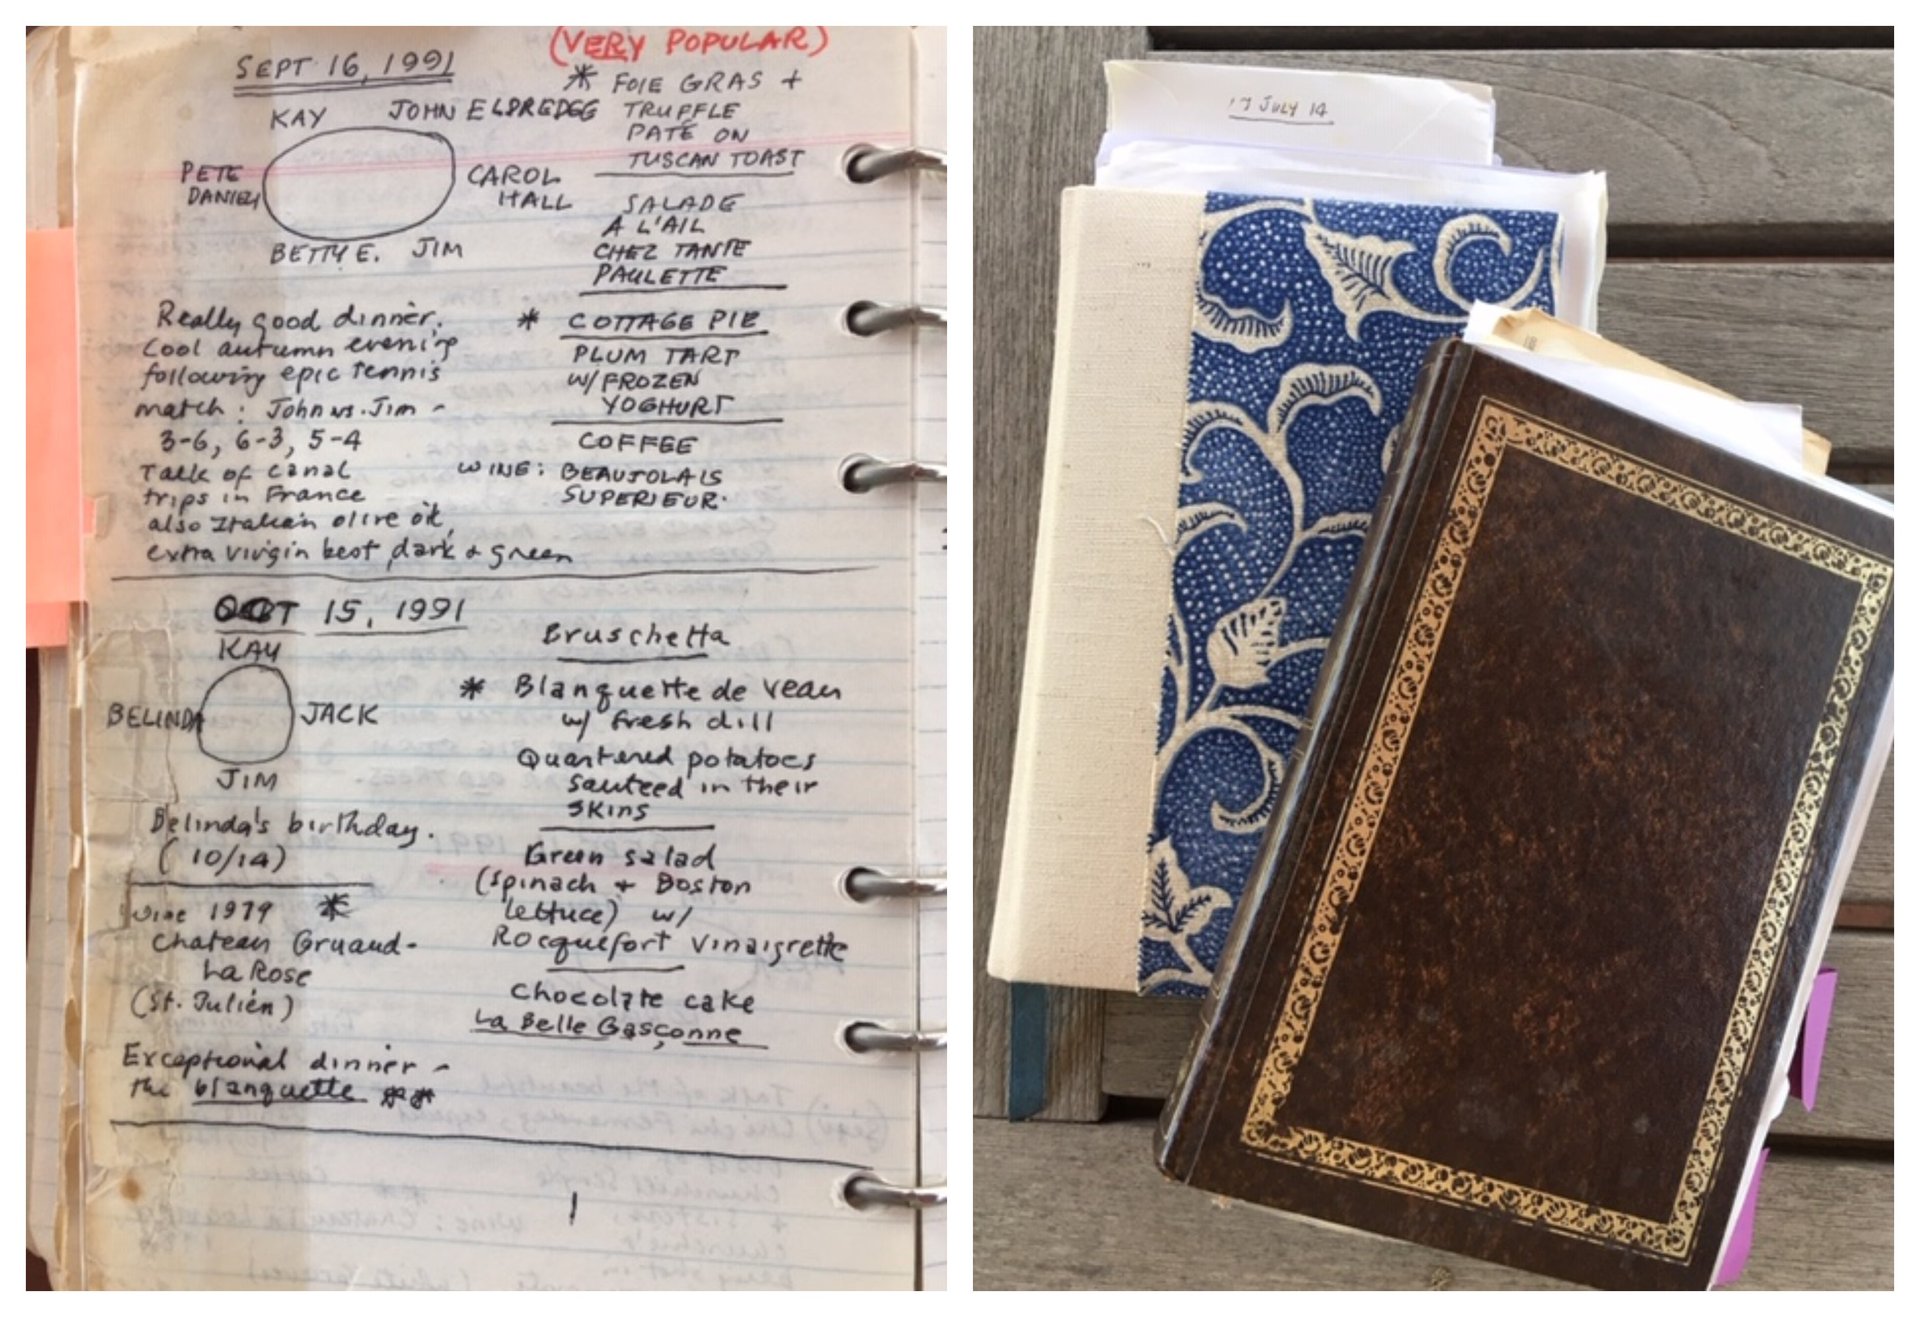 SEPT 16, 1991
KAY JOHN ELDREDGE
PETE DANIELL
CAROL HALL
BETTY E. JIM
Really good dinner.
Cool autumn evening
following epic tennis
match: John vs. Jim -
3-6, 6-3, 5-4
Talk of canal
trips in France
also Italian olive oil,
extra virgin best, dark + green
(VERY POPULAR)
* FOIE GRAS +
TRUFFLE
PATÉ ON
TUSCAN TOAST
SALADE
A L'AIL
CHEZ TANTE
PAULETTE
* COTTAGE PIE
PLUM TART
W/ FROZEN
YOGHURT
COFFEE
WINE: BEAUJOLAIS
SUPERIEUR.
OCT 15, 1991
KAY
BELINDA JACK
JIM
Belinda's birthday.
(10/14)
Wine 1979 *
Chateau Gruaud-
La Rose
(St. Julien)
Exceptional dinner -
the blanquette **
Bruschetta
* Blanquette de veau
w/ fresh dill
Quartered potatoes
sauteed in their
skins
Green salad
(spinach + Boston
lettuce) w/
Rocquefort vinaigrette
Chocolate cake
La Belle Gasçonne
17 JULY 14